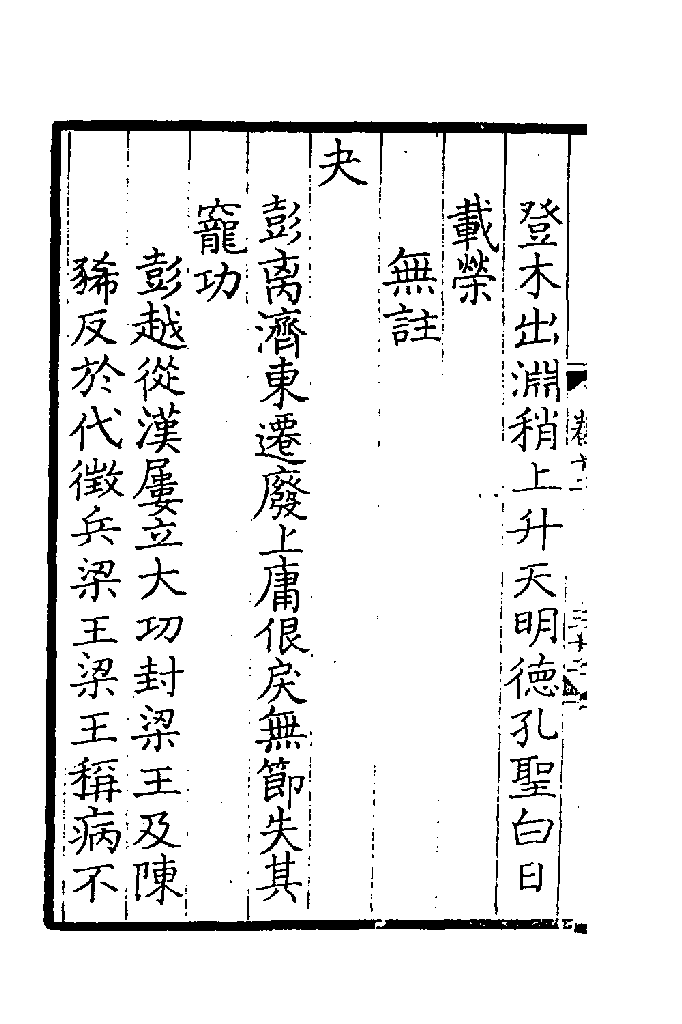 登木出淵稍上升天明德孔聖白日
載榮
無註
夬
彭离濟東遷廢上庸佷戾無節失其
寵功
彭越從漢屢立大功封梁王及陳
豨反於代徵兵梁王梁王稱病不
卷十二